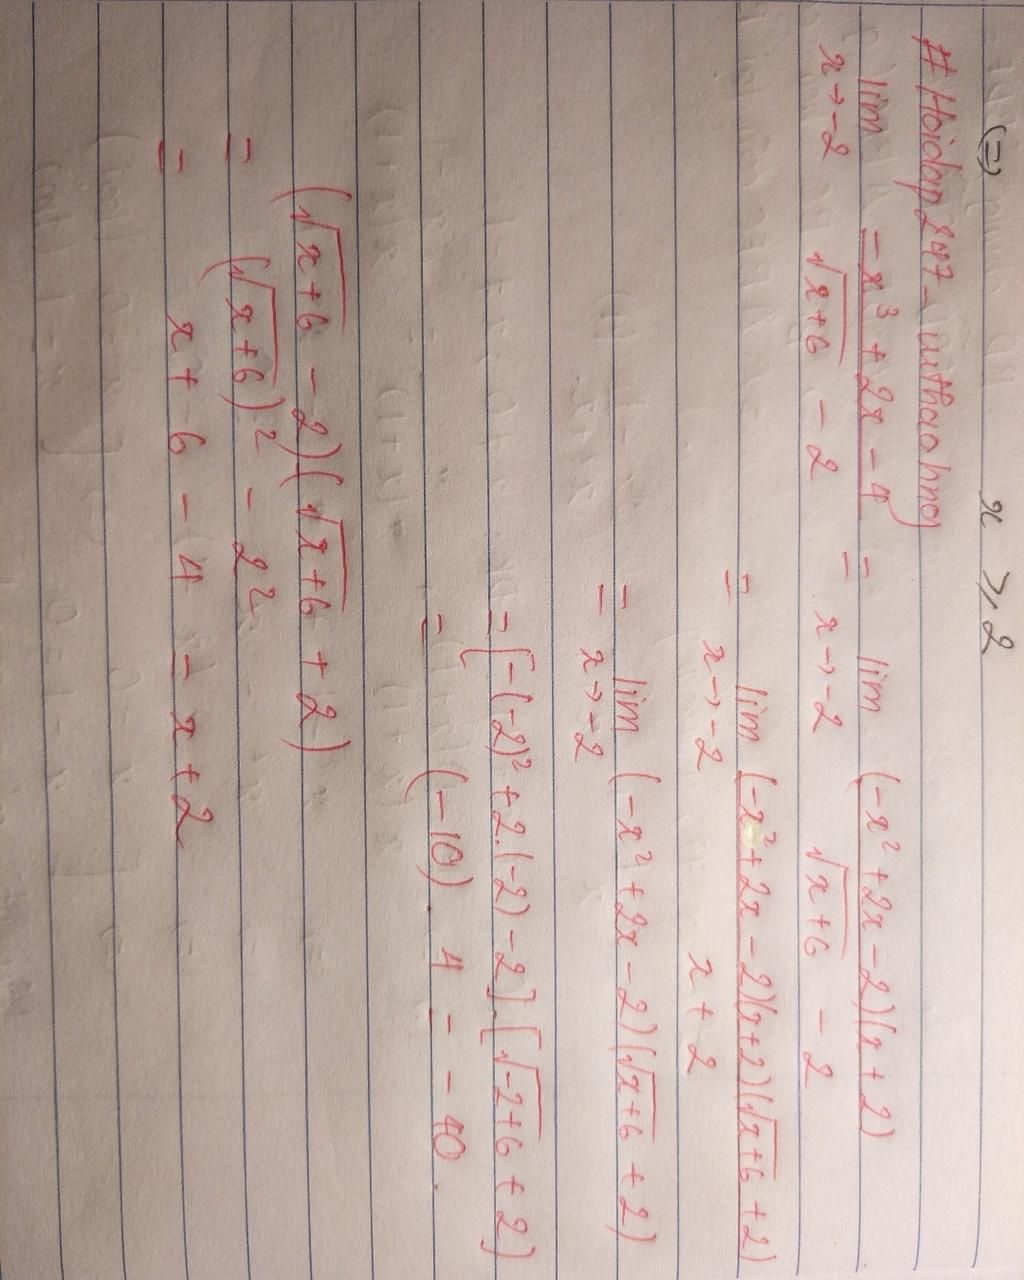 (=) x ⩾ 2
# Hoidap247 - iuthaohnq
lim x→-2 (-x³ + 2x - 4)/(√(x+6) - 2) = lim x→-2 ((-x² + 2x - 2)(x + 2))/(√(x+6) - 2)
= lim x→-2 ((-x² + 2x - 2)(x+2)(√(x+6) + 2))/(x + 2)
= lim x→-2 (-x² + 2x - 2)(√(x+6) + 2)
= [-(-2)² + 2.(-2) - 2].[√(-2+6) + 2]
= (-10) . 4 = - 40.
(√(x+6) - 2)(√(x+6) + 2)
= (√(x+6))² - 2²
= x + 6 - 4 = x + 2